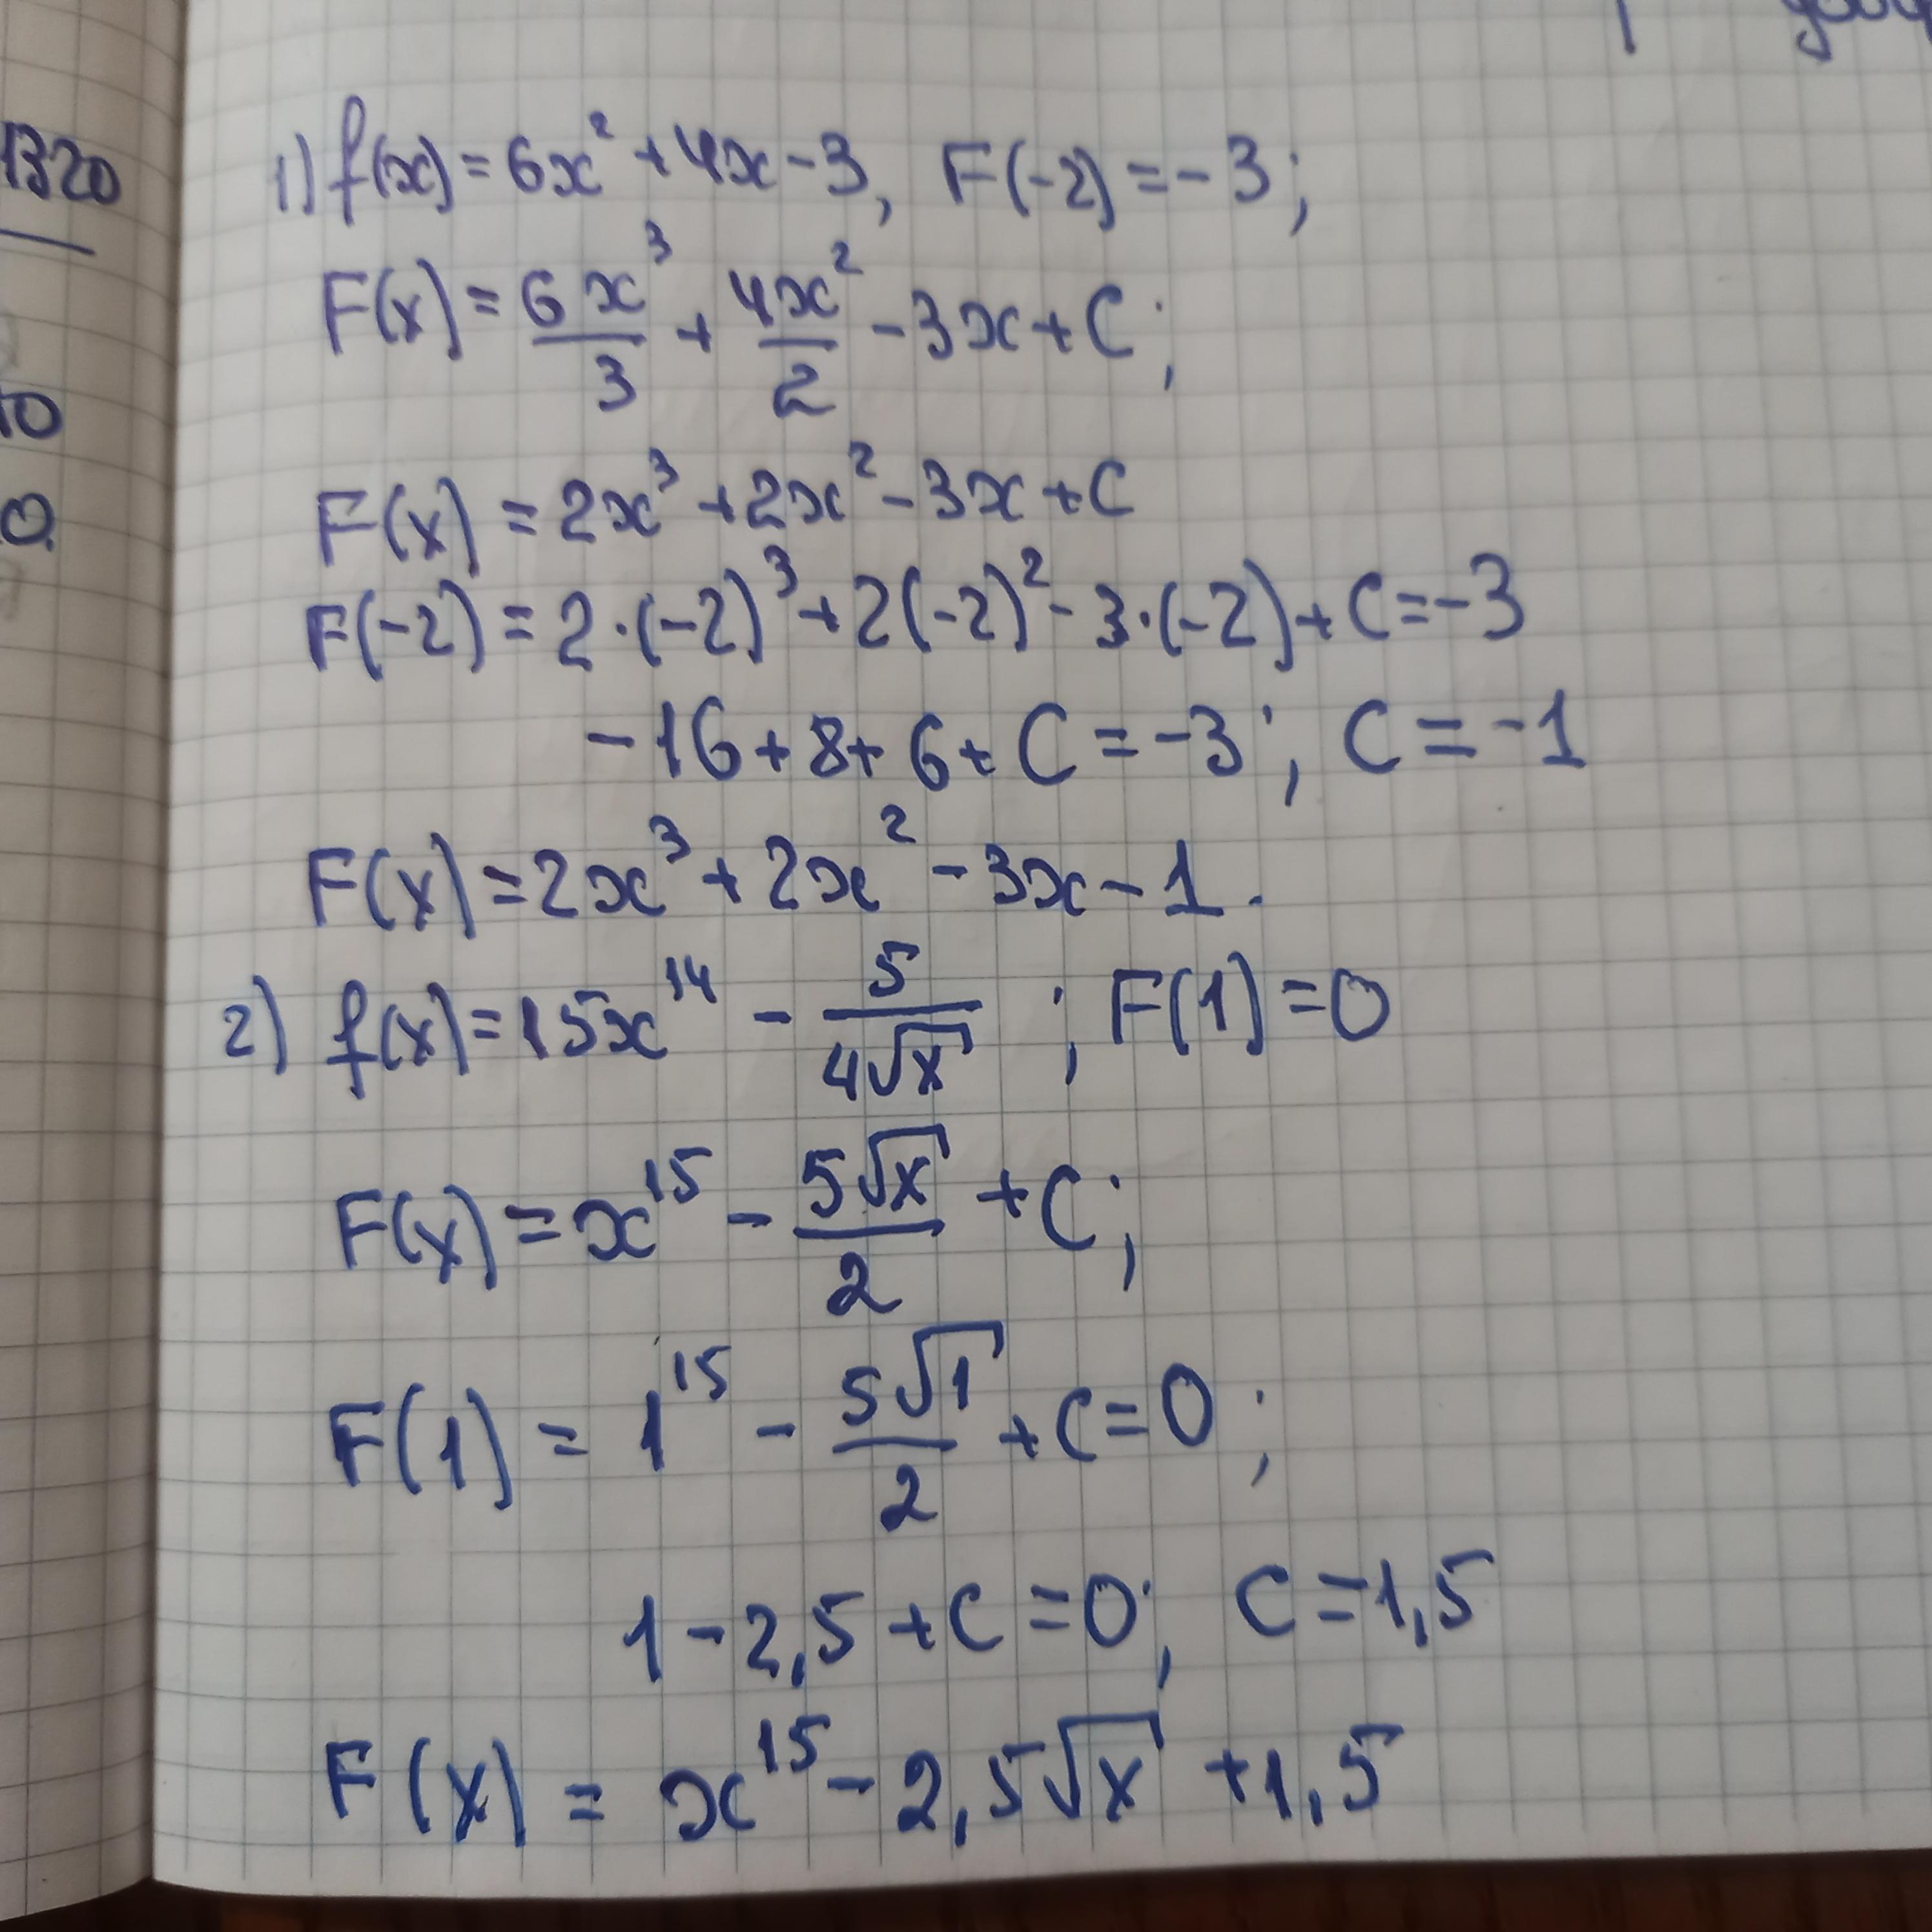 1320
10
0.
1) f(x) = 6x² + 4x - 3, F(-2) = -3;
F(x) = 6x³/3 + 4x²/2 - 3x + C;
F(x) = 2x³ + 2x² - 3x + C
F(-2) = 2·(-2)³ + 2(-2)² - 3·(-2) + C = -3
-16 + 8 + 6 + C = -3; C = -1
F(x) = 2x³ + 2x² - 3x - 1.
2) f(x) = 15x¹⁴ - 5/(4√x); F(1) = 0
F(x) = x¹⁵ - 5√x/2 + C;
F(1) = 1¹⁵ - 5√1/2 + C = 0;
1 - 2,5 + C = 0; C = 1,5
F(x) = x¹⁵ - 2,5√x + 1,5